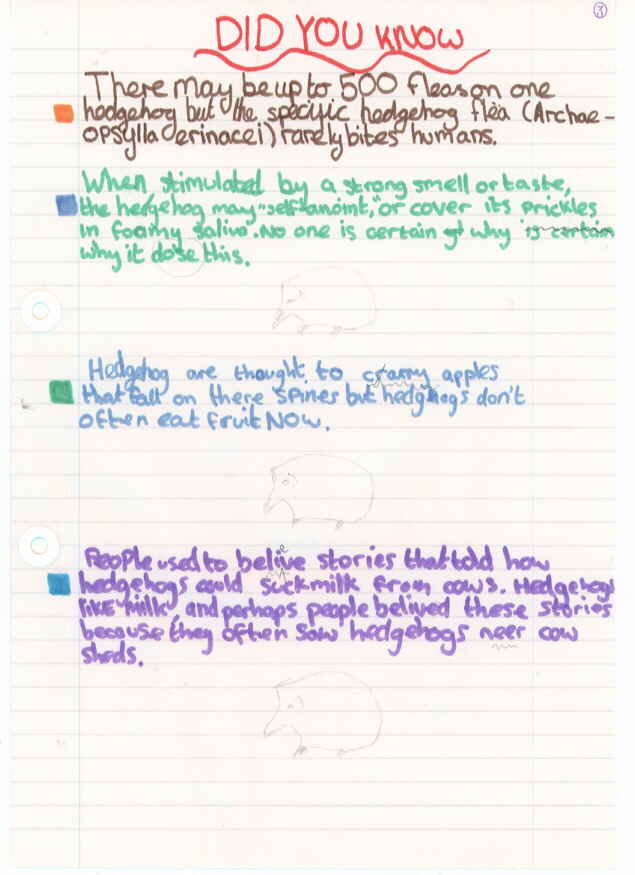 3
DID YOU KNOW
There may be up to 500 fleas on one
hedgehog but the specific hedgehog flea (Archae-
opsylla erinacei) rarely bites humans.
When stimulated by a strong smell or taste,
the hedgehog may "self-anoint," or cover its prickles
in foamy saliva. No one is certain why is certain
why it dose this.
Hedgehog are thought to crarry apples
that fall on there spines but hedghogs don't
often eat fruit NOW.
People used to belive stories that told how
hedgehogs could suck milk from cows. Hedgehogs
like milk, and perhaps people belived these stories
because they often saw hedgehogs neer cow
sheds.